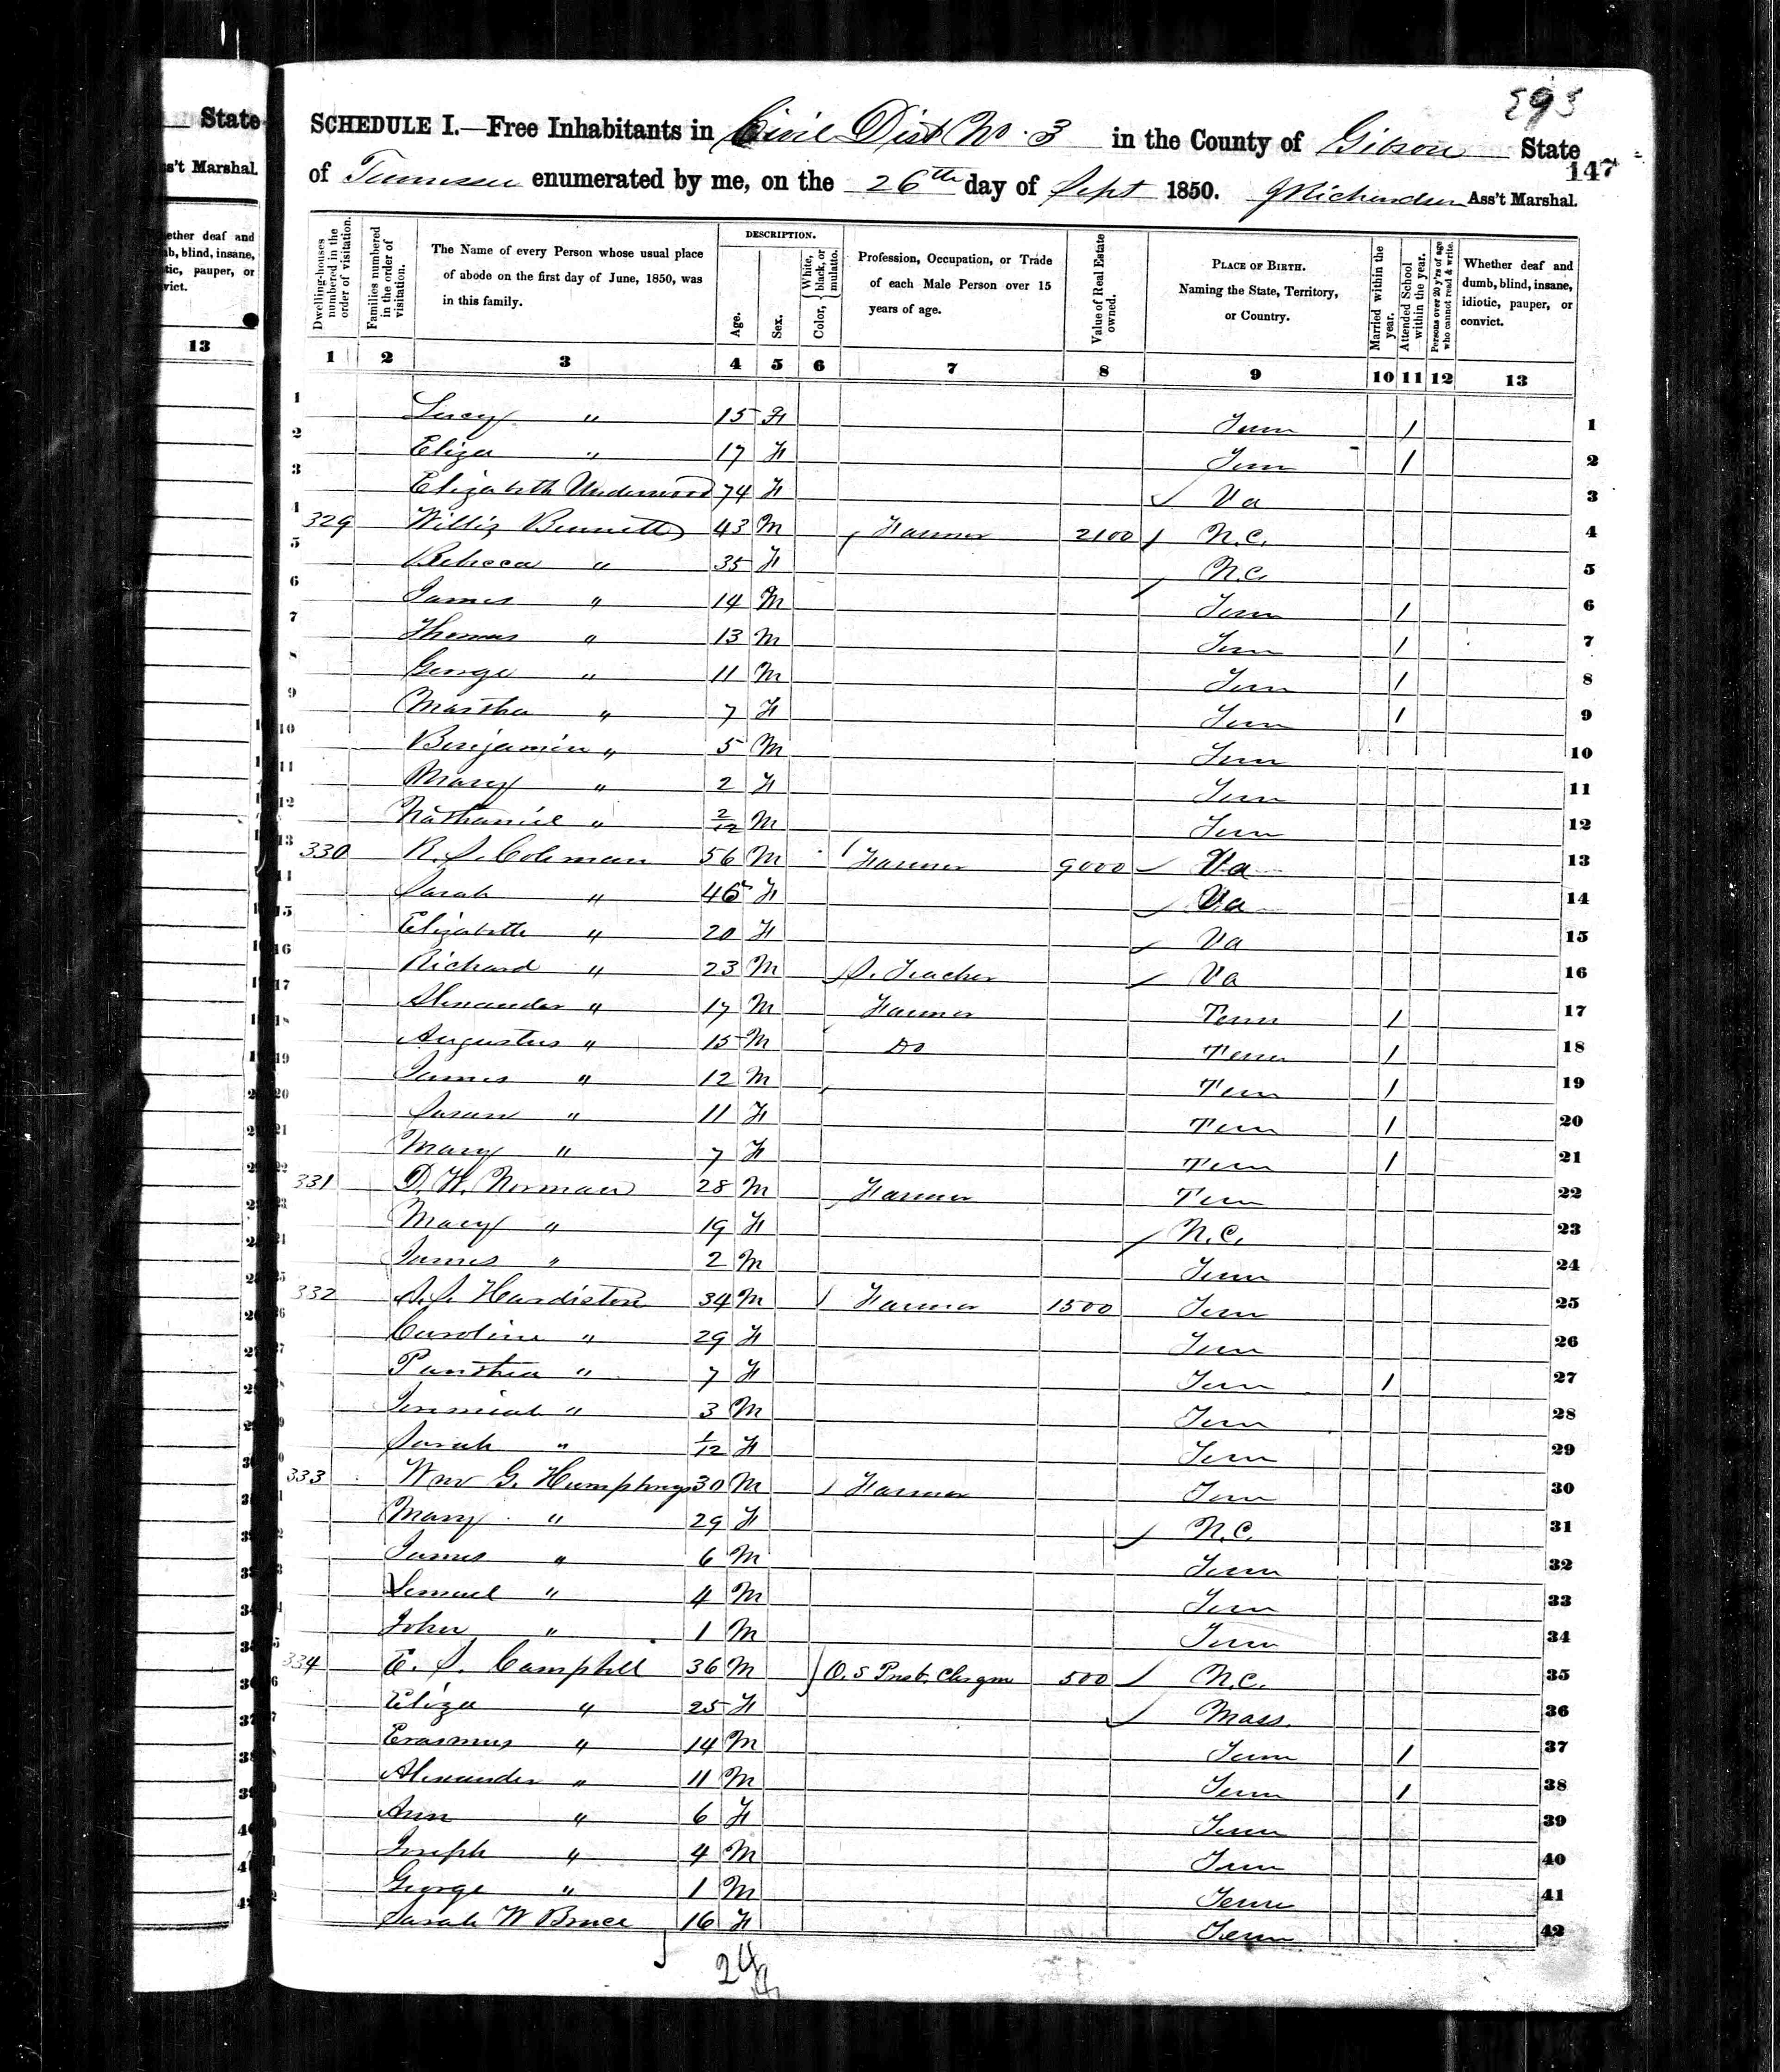 State
ss't Marshal.
ether deaf and
b, blind, insane,
tic, pauper, or
vict.
13
295
SCHEDULE I.—Free Inhabitants in Civil Dist No. 3 in the County of Gibson State
147
of Tennessee enumerated by me, on the 26th day of Sept 1850. Ass't Marshal.
Dwelling-houses numbered in the order of visitation.
Families numbered in the order of visitation.
The Name of every Person whose usual place of abode on the first day of June, 1850, was in this family.
DESCRIPTION.
Age.
Sex.
Color, { White, black, or mulatto.
Profession, Occupation, or Trade of each Male Person over 15 years of age.
Value of Real Estate owned.
PLACE OF BIRTH. Naming the State, Territory, or Country.
Married within the year.
Attended School within the year.
Persons over 20 y'rs of age who cannot read & write.
Whether deaf and dumb, blind, insane, idiotic, pauper, or convict.
1 2 3 4 5 6 7 8 9 10 11 12 13
1 Lucy " 15 F Tenn 1 1
2 Eliza " 17 F Tenn 1 2
3 Elizabeth Underwood 74 F Va 3
4 329 Willis Bennett 43 M Farmer 2100 N.C. 4
5 Rebecca " 35 F N.C. 5
6 James " 14 M Tenn 1 6
7 Thomas " 13 M Tenn 1 7
8 George " 11 M Tenn 1 8
9 Martha " 7 F Tenn 1 9
10 Benjamin " 5 M Tenn 10
11 Mary " 2 F Tenn 11
12 Nathaniel " 2/12 M Tenn 12
13 330 R. S. Coleman 56 M Farmer 9000 Va 13
14 Sarah " 45 F Va 14
15 Elizabeth " 20 F Va 15
16 Richard " 23 M S. Teacher Va 16
17 Alexander " 17 M Farmer Tenn 1 17
18 Augustus " 15 M Do Tenn 1 18
19 James " 12 M Tenn 1 19
20 Susan " 11 F Tenn 1 20
21 Mary " 7 F Tenn 1 21
331 D. H. Norman 28 M Farmer Tenn 22
Mary " 19 F N.C. 23
James " 2 M Tenn 24
332 S. S. Hardison 34 M Farmer 1500 Tenn 25
Caroline " 29 F Tenn 26
Panthea " 7 F Tenn 1 27
Jeremiah " 3 M Tenn 28
Sarah " 1/12 F Tenn 29
333 Wm G. Humphreys 30 M Farmer Tenn 30
Mary " 29 F N.C. 31
James " 6 M Tenn 32
Lemuel " 4 M Tenn 33
John " 1 M Tenn 34
334 E. S. Campbell 36 M O. S Presb. Clergm 500 N.C. 35
Eliza " 25 F Mass. 36
Erasmus " 14 M Tenn 1 37
Alexander " 11 M Tenn 1 38
Ann " 6 F Tenn 39
Joseph " 4 M Tenn 40
George " 1 M Tenn 41
Sarah W Bruce 16 F Tenn 42
24